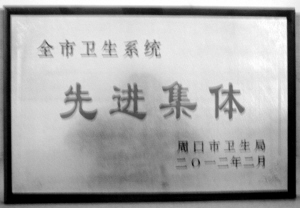 全市卫生系统
先进集体
周口市卫生局
二〇一二年二月